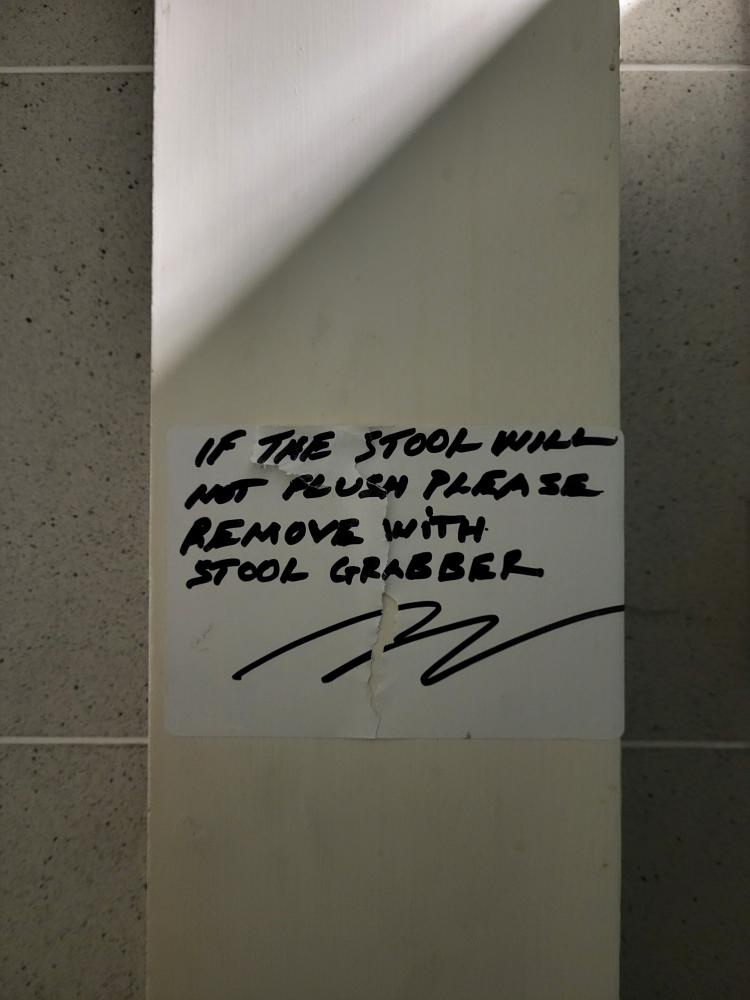 IF THE STOOL WILL
NOT FLUSH PLEASE
REMOVE WITH
STOOL GRABBER